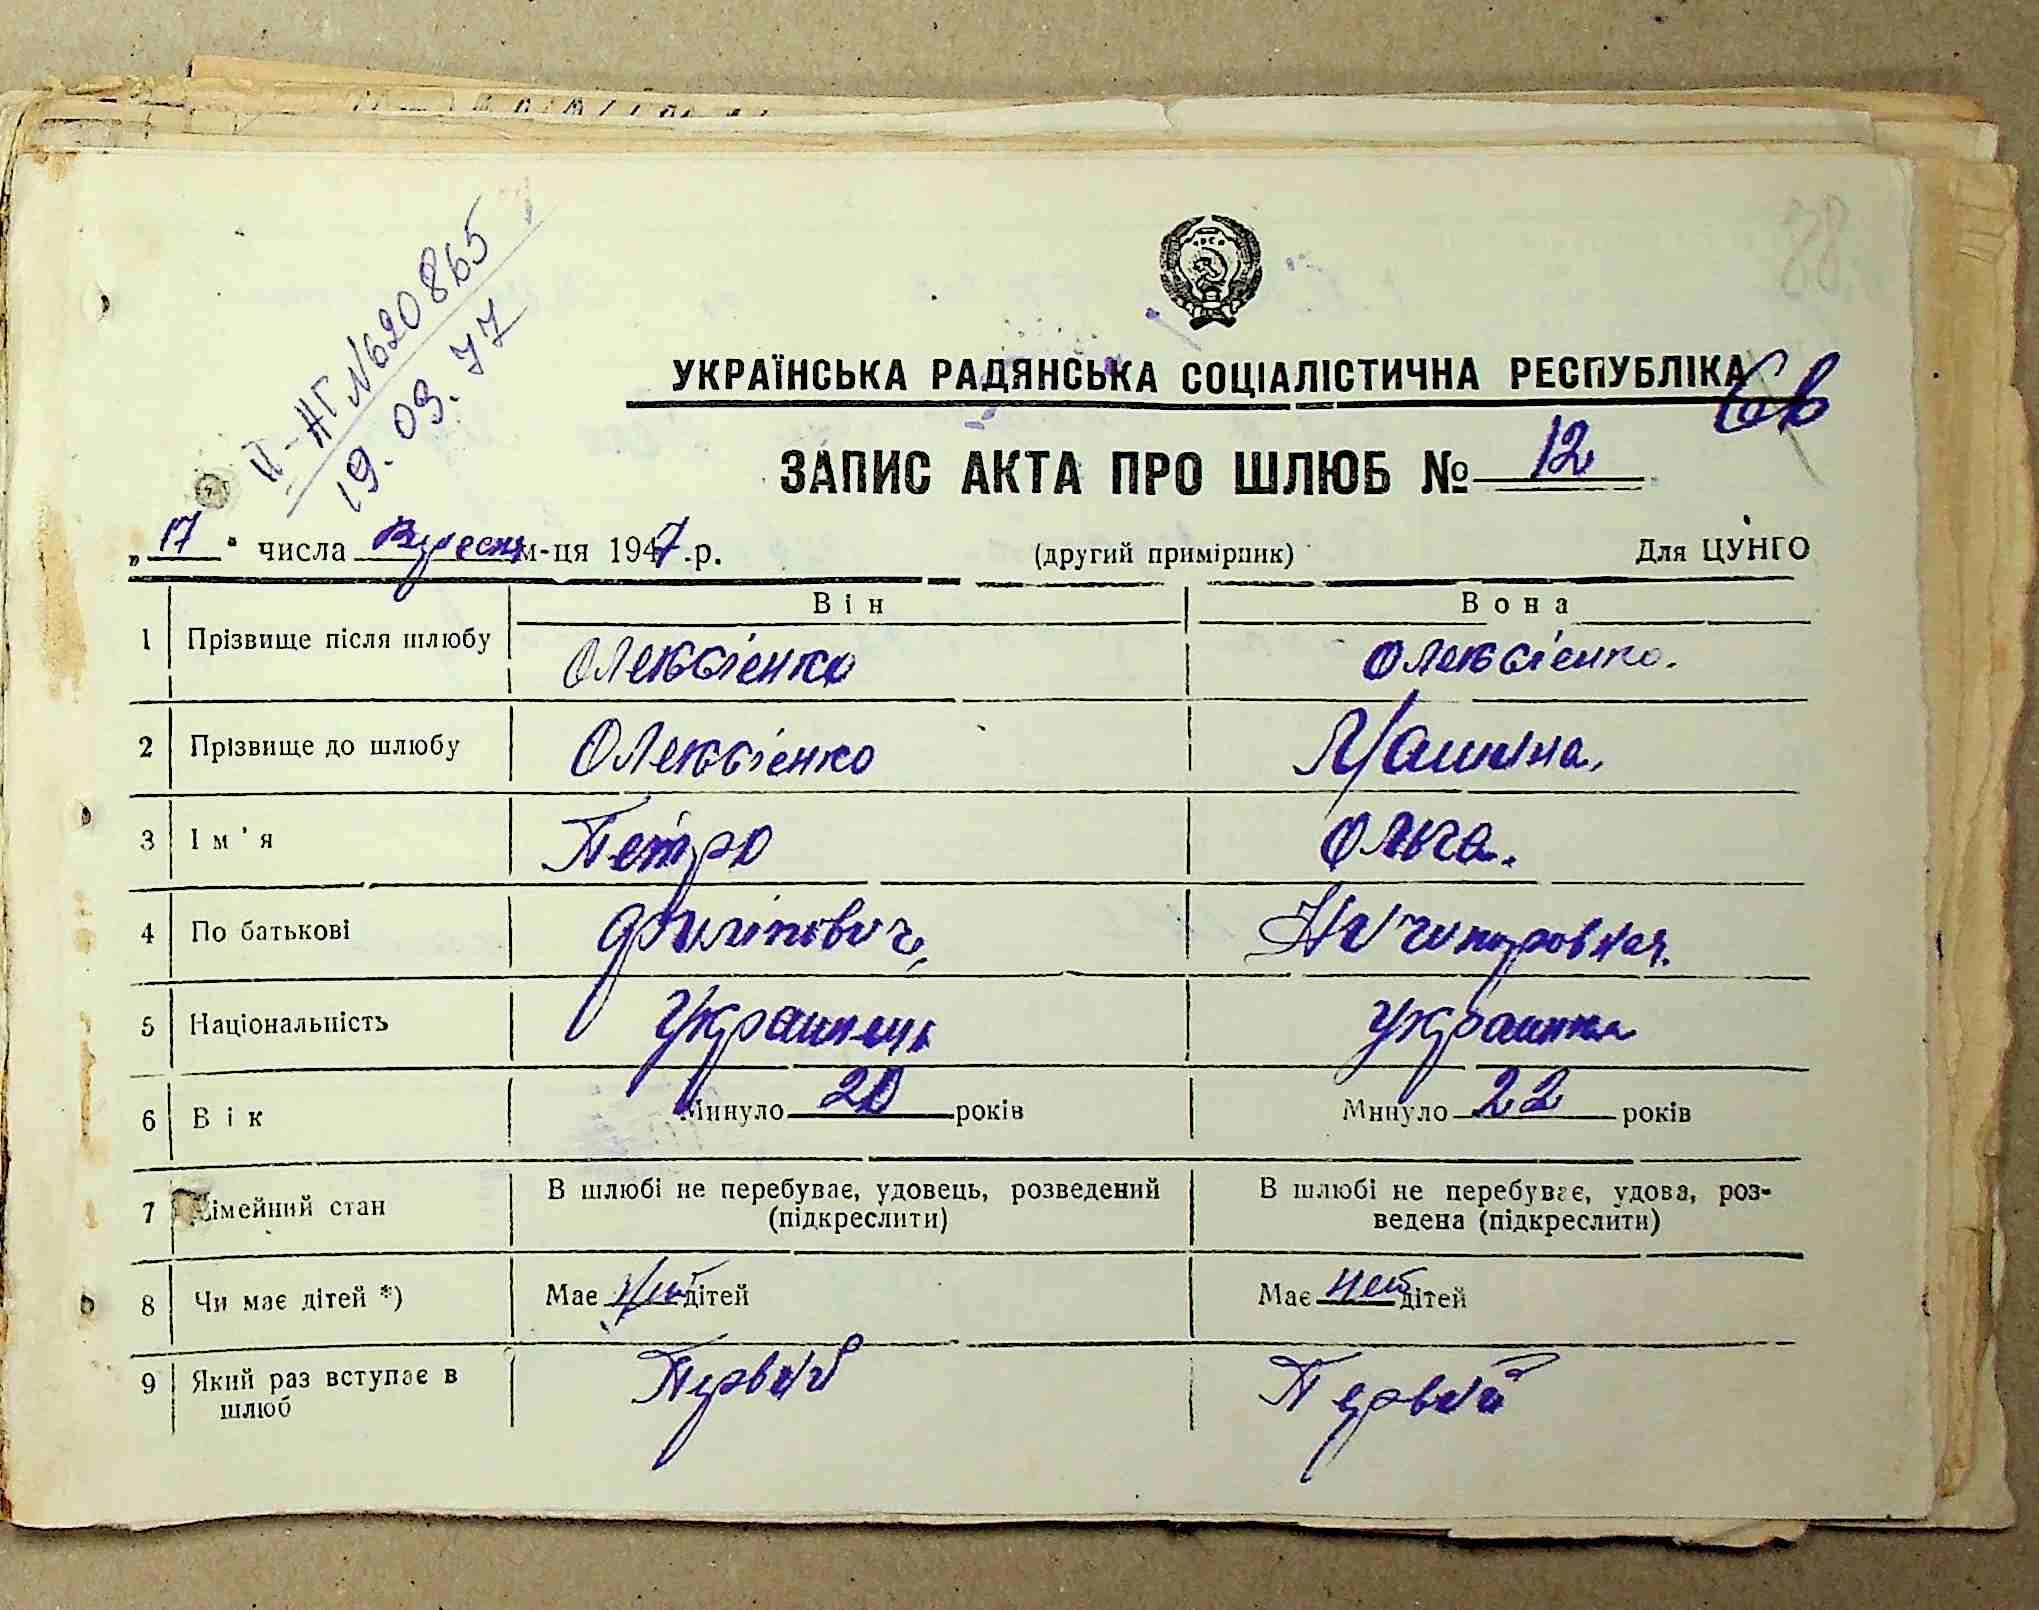 38
ІІ-НГ № 620865
19.09.77
УКРАЇНСЬКА РАДЯНСЬКА СОЦІАЛІСТИЧНА РЕСПУБЛІКА
ЗАПИС АКТА ПРО ШЛЮБ № 12
„17“ числа Вересня м-ця 1947 р. (другий примірник) Для ЦУНГО
Він Вона
1 Прізвище після шлюбу Олексієнко Олексієнко.
2 Прізвище до шлюбу Олексієнко
3 Ім'я Петро Ольга.
4 По батькові Филіпович, Ничипоровная.
5 Національність Украинець Украинка
6 Вік Минуло 20 років Минуло 22 років
7 Сімейний стан В шлюбі не перебуває, удовець, розведений В шлюбі не перебуває, удова, роз-
(підкреслити) ведена (підкреслити)
8 Чи має дітей *) Має нет дітей Має нет дітей
9 Який раз вступає в Первый Первый
шлюб